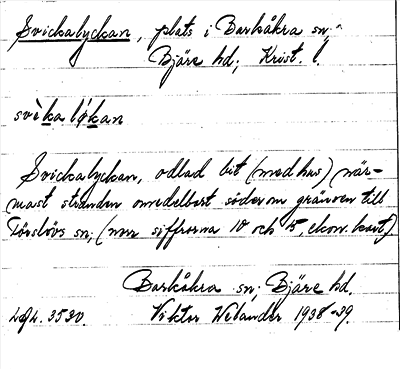 Svickalyckan, plats i Barkåkra sn;
Bjäre hd; Krist. l.
svìka lỳkan
Svickalyckan, odlad bit (med hus) när-
mast stranden omedelbart söder om gränsen till
Förslövs sn; (mm siffrorna 10 och 15, ekon. kart)
Barkåkra sn; Bjäre hd.
Viktor Welander 1938-39.